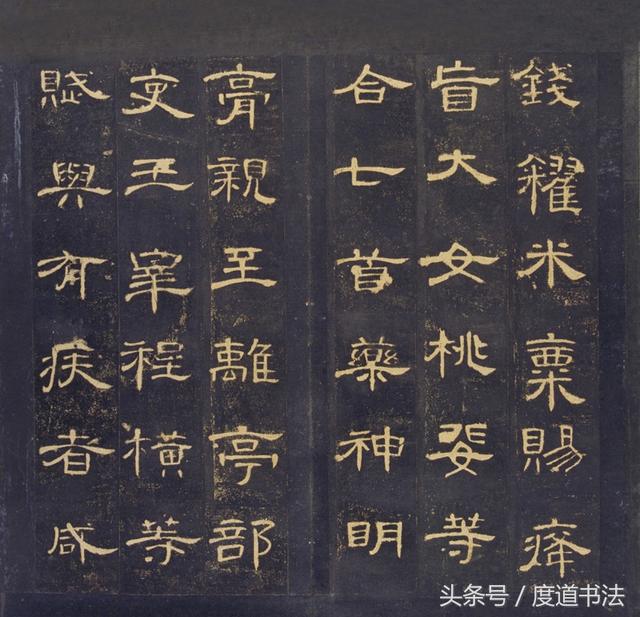 錢糴米粟賜瘴
盲大女桃婓等
合七首藥神明
膏親至離亭部
吏王宰程橫等
賦與有疾者咸
头条号 / 度道书法